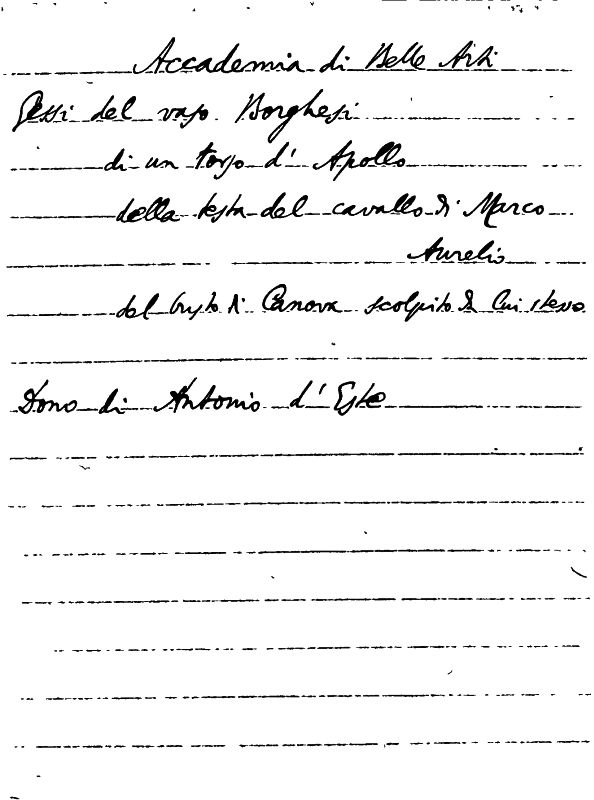 Accademia di Belle Arti
Gessi del vaso Borghesi
di un torso d' Apollo
della testa del cavallo di Marco
Aurelio
del busto di Canova scolpito da lui stesso
Dono di Antonio d' Este